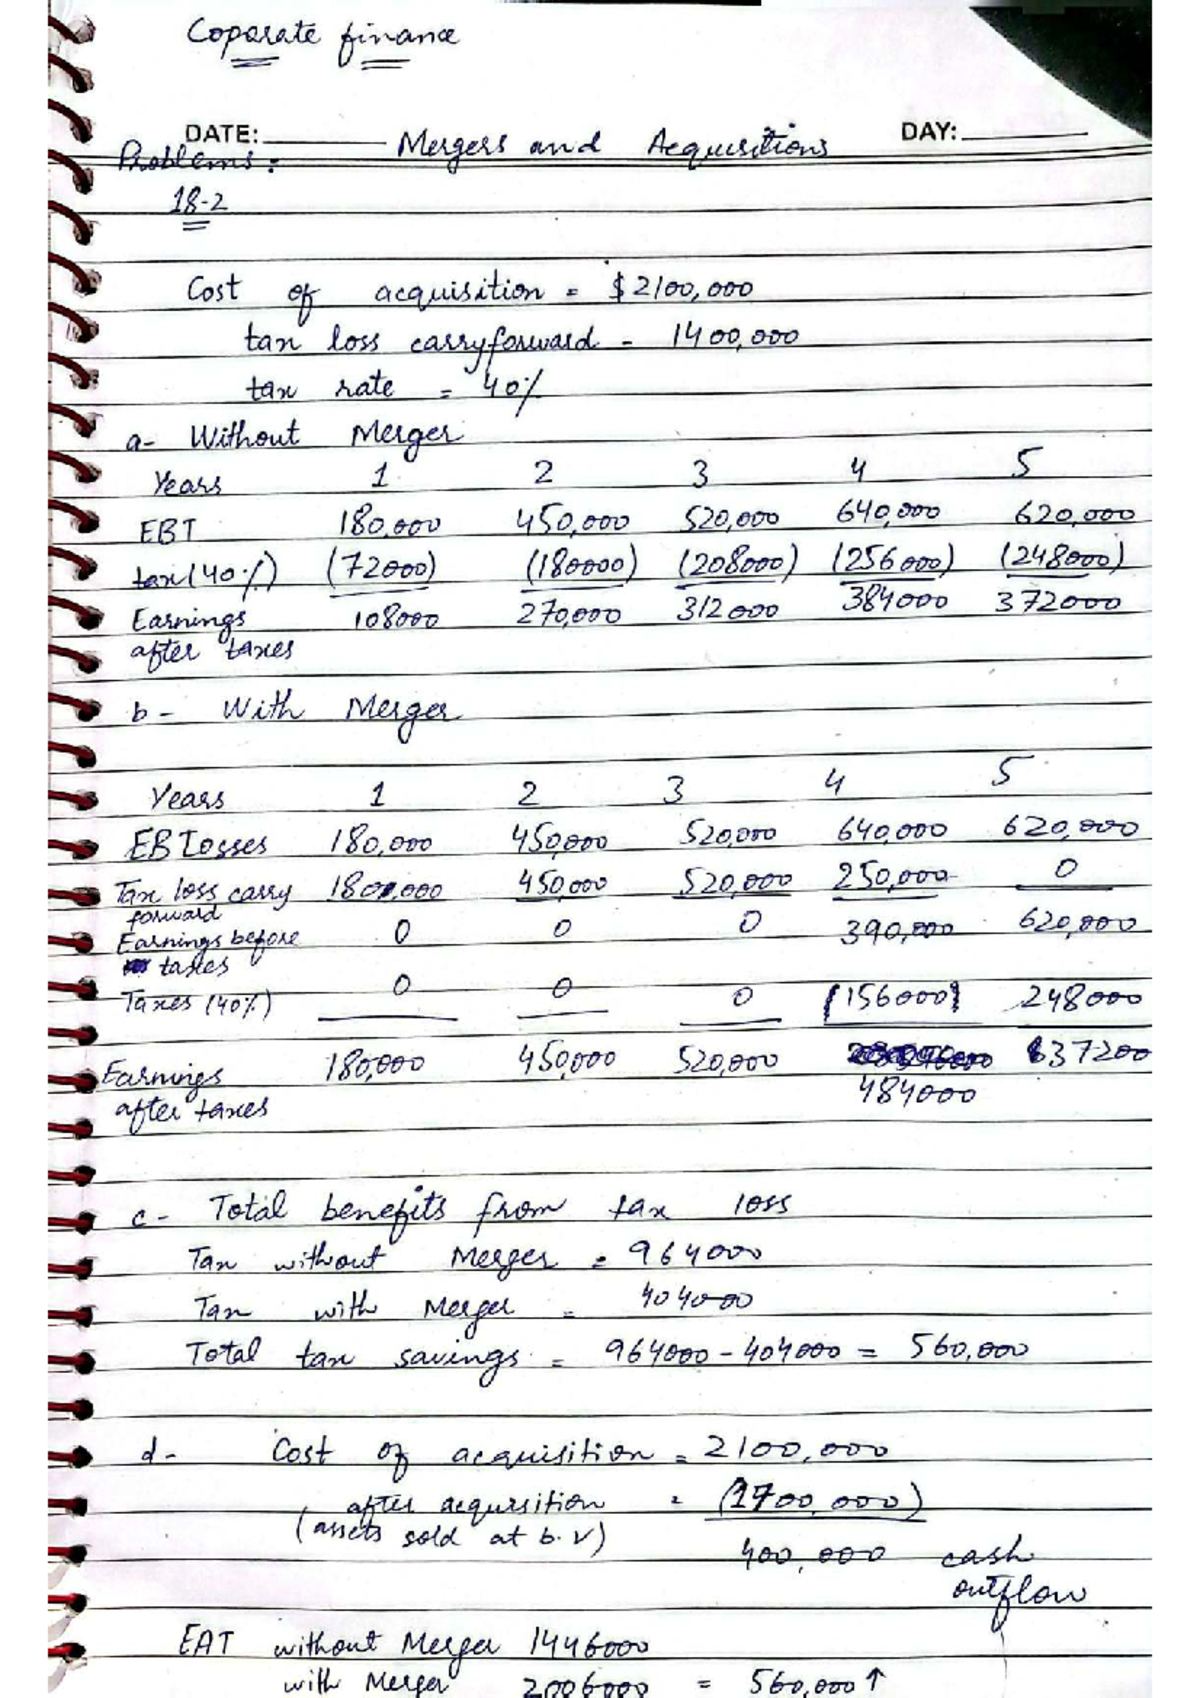 Coporate finance
DATE: DAY:
Mergers and Acqusitions
Problems:
18-2
Cost of acquisition = $2100,000
tax loss carryforward = 1400,000
tax rate = 40%
a- Without Merger
Years 1 2 3 4 5
EBT 180,000 450,000 520,000 640,000 620,000
tax(40%) (72000) (180000) (208000) (256000) (248000)
Earnings 108000 270,000 312000 384000 372000
after taxes
b- With Merger
Years 1 2 3 4 5
EBTosses 180,000 450,000 520,000 640,000 620,000
Tax loss carry 180,000 450,000 520,000 250,000 0
forward
Earnings before 0 0 0 390,000 620,000
taxes
Taxes (40%) 0 0 0 (156000) 248000
Earnings 180,000 450,000 520,000 637200
after taxes 484000
c- Total benefits from tax loss
Tax without Merger = 964000
Tax with Merger = 404000
Total tax savings = 964000 - 404000 = 560,000
d- Cost of acquisition = 2100,000
after acqusition = (1700,000)
(assets sold at b.v)
400,000 cash
outflow
EAT without Merger 1446000
with Merger 2006000 = 560,000↑